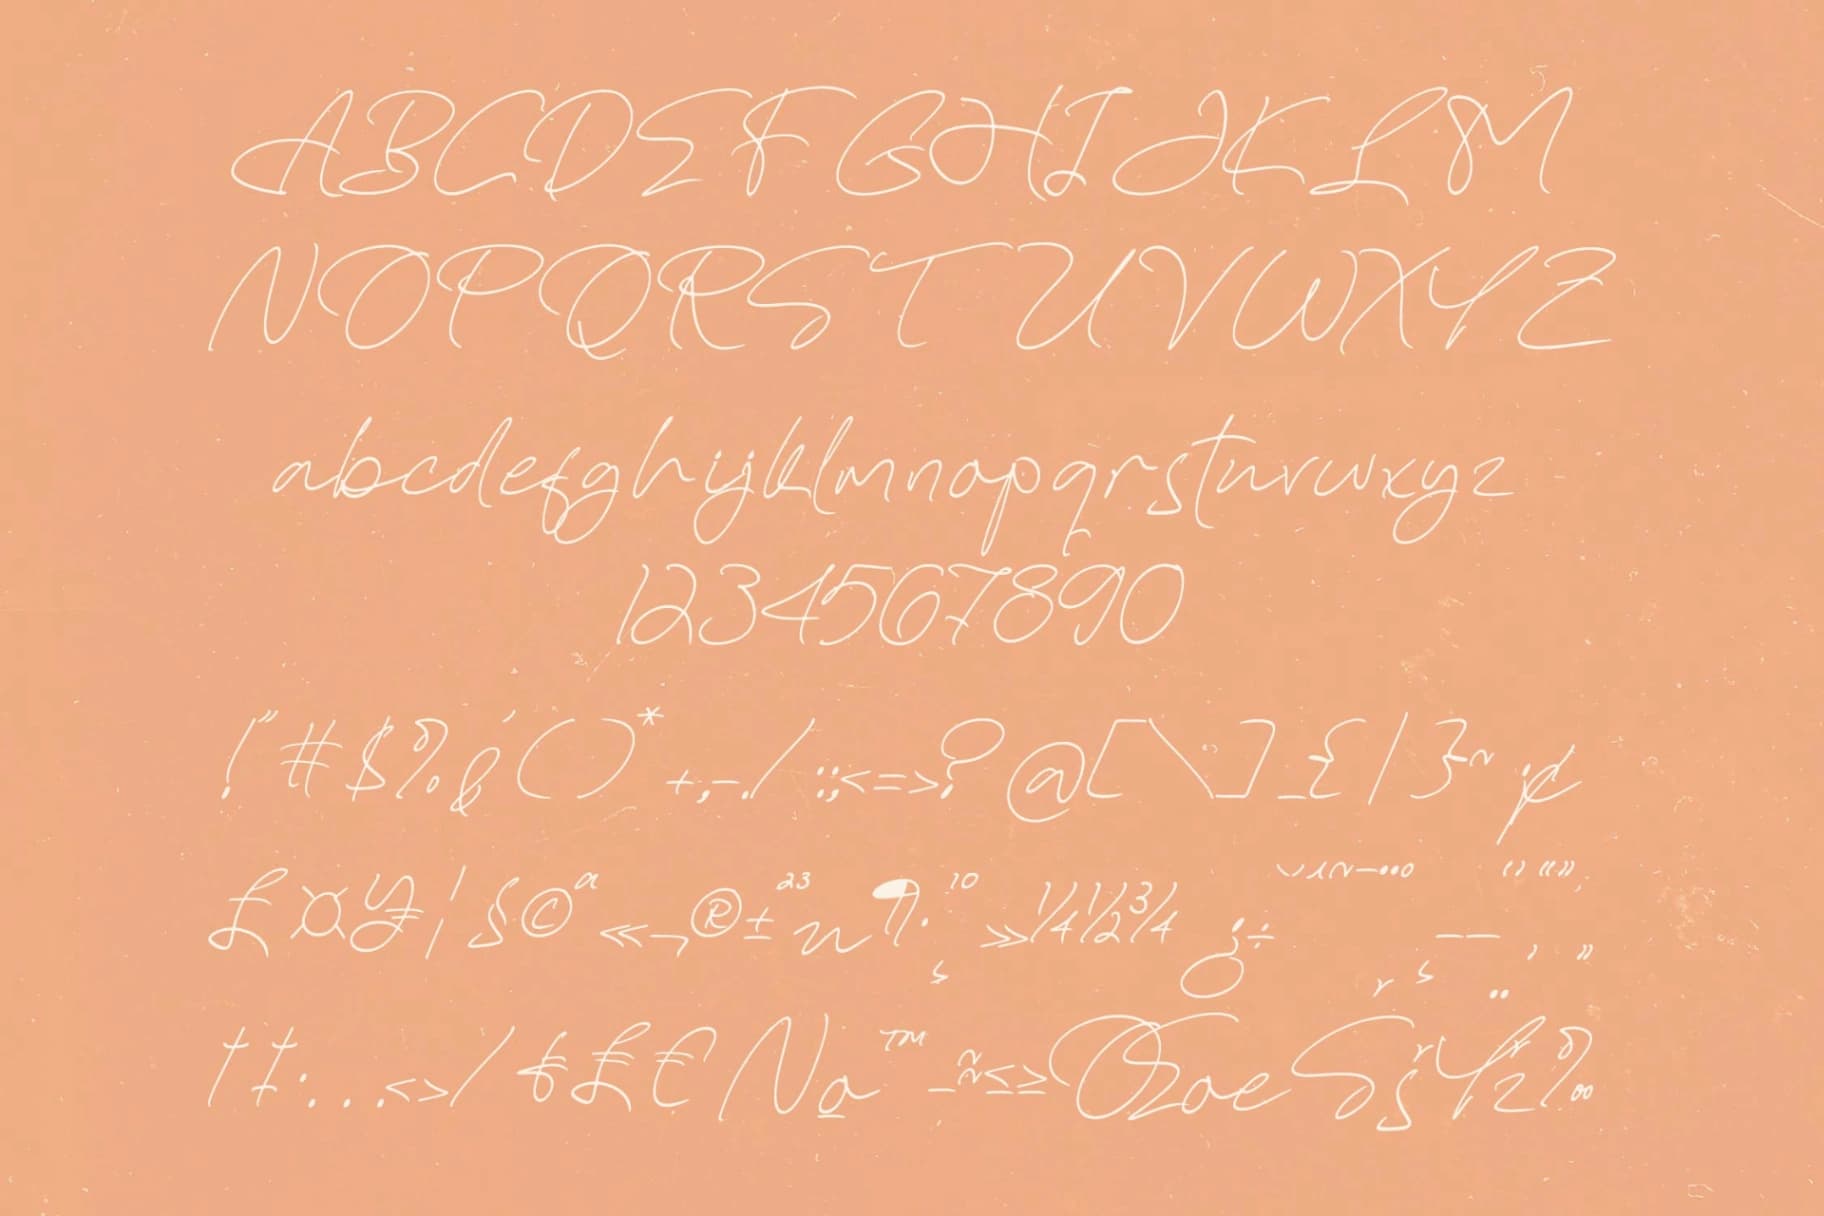 ABCDEFGHIJKLM
NOPQRSTUVWXYZ
abcdefghijklmnopqrstuvwxyz
1234567890
!"#$%&'()*+,-./:;<=>?@[\]_{|}~¡¢
£¤¥¦§©ª«¬®±²³µ¶·¹º»¼½¾¿÷
†‡•…‹›⁄€№™−≈≤≥ŒœŠšŸž‰